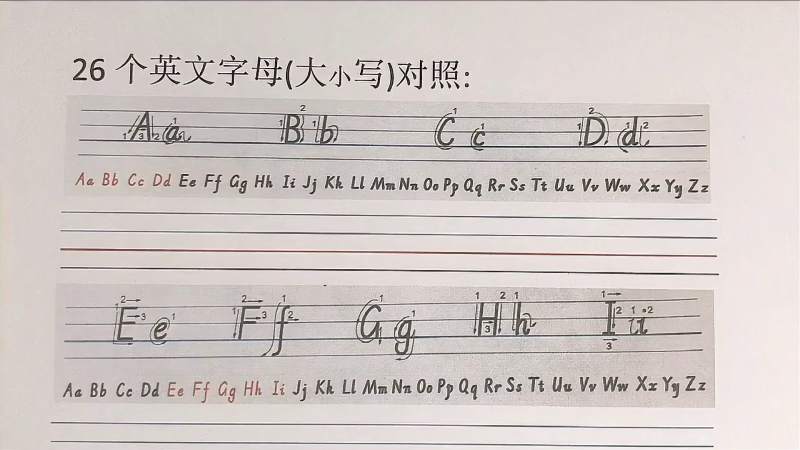 26个英文字母(大小写)对照:
Aa Bb Cc Dd
Aa Bb Cc Dd Ee Ff Gg Hh Ii Jj Kk Ll Mm Nn Oo Pp Qq Rr Ss Tt Uu Vv Ww Xx Yy Zz
Ee Ff Gg Hh Ii
Aa Bb Cc Dd Ee Ff Gg Hh Ii Jj Kk Ll Mm Nn Oo Pp Qq Rr Ss Tt Uu Vv Ww Xx Yy Zz